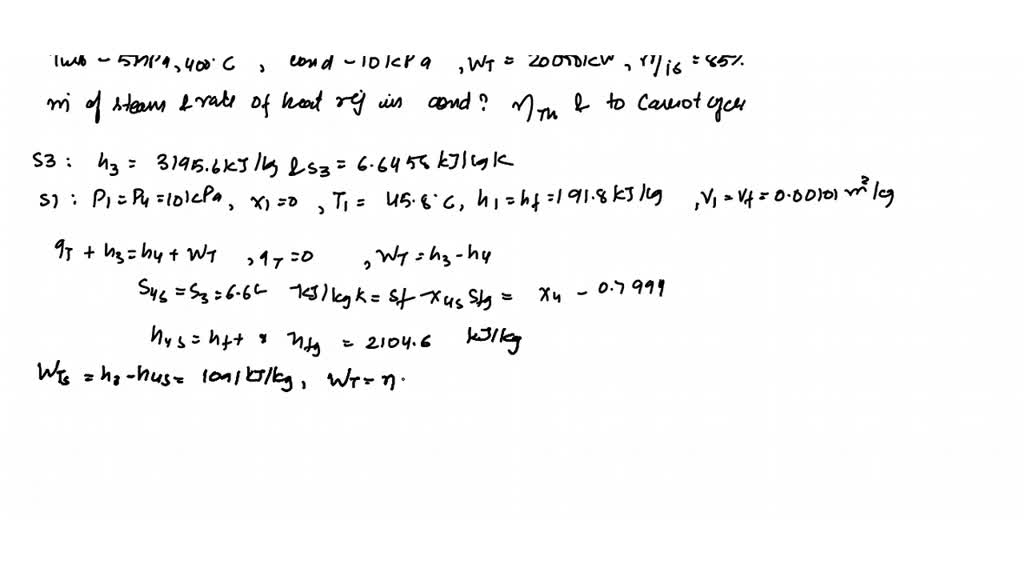 - 5MPa, 400°C , cond - 10kPa , WT = 20000kW , = 85%
ṁ of steam & rate of heat rej in cond? ηTh & to Carnot cycle
S3 : h3 = 3195.6kJ/kg & s3 = 6.6456 kJ/kgK
S1 : P1 = P4 = 10kPa, x1 = 0 , T1 = 45.8°C, h1 = hf = 191.8kJ/kg , V1 = Vf = 0.00101 m³/kg
qT + h3 = h4 + WT , qT = 0 , WT = h3 - h4
S4s = S3 = 6.6 kJ/kgK = Sf - x4s Sfg = x4 - 0.7994
h4s = hf + hfg = 2104.6 kJ/kg
WTs = h3 - h4s = 1091kJ/kg, WT = η.